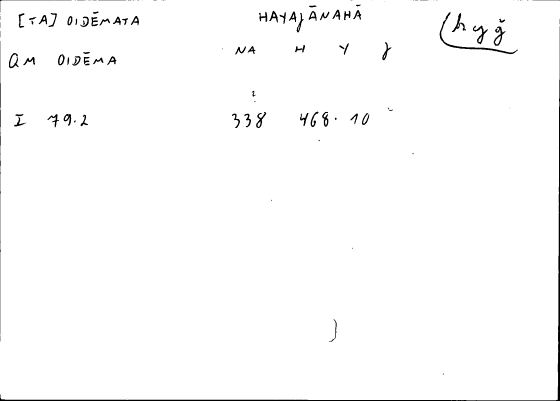 [TA] OIDĒMATA HAYAJĀNAHĀ (h y ǧ
QM OIDĒMA NA H Y J
?
I 79.2 338 468. 10